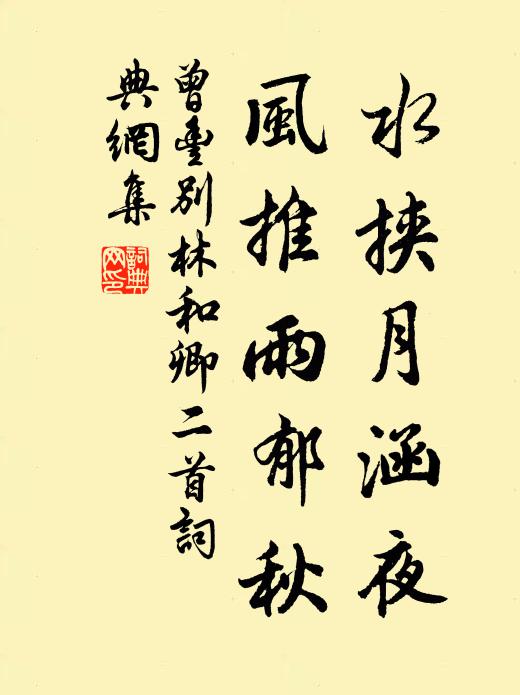 水挟月涵夜
風推雨郁秋
曾豊別林和卿二首詞
典網集
詞典
网印